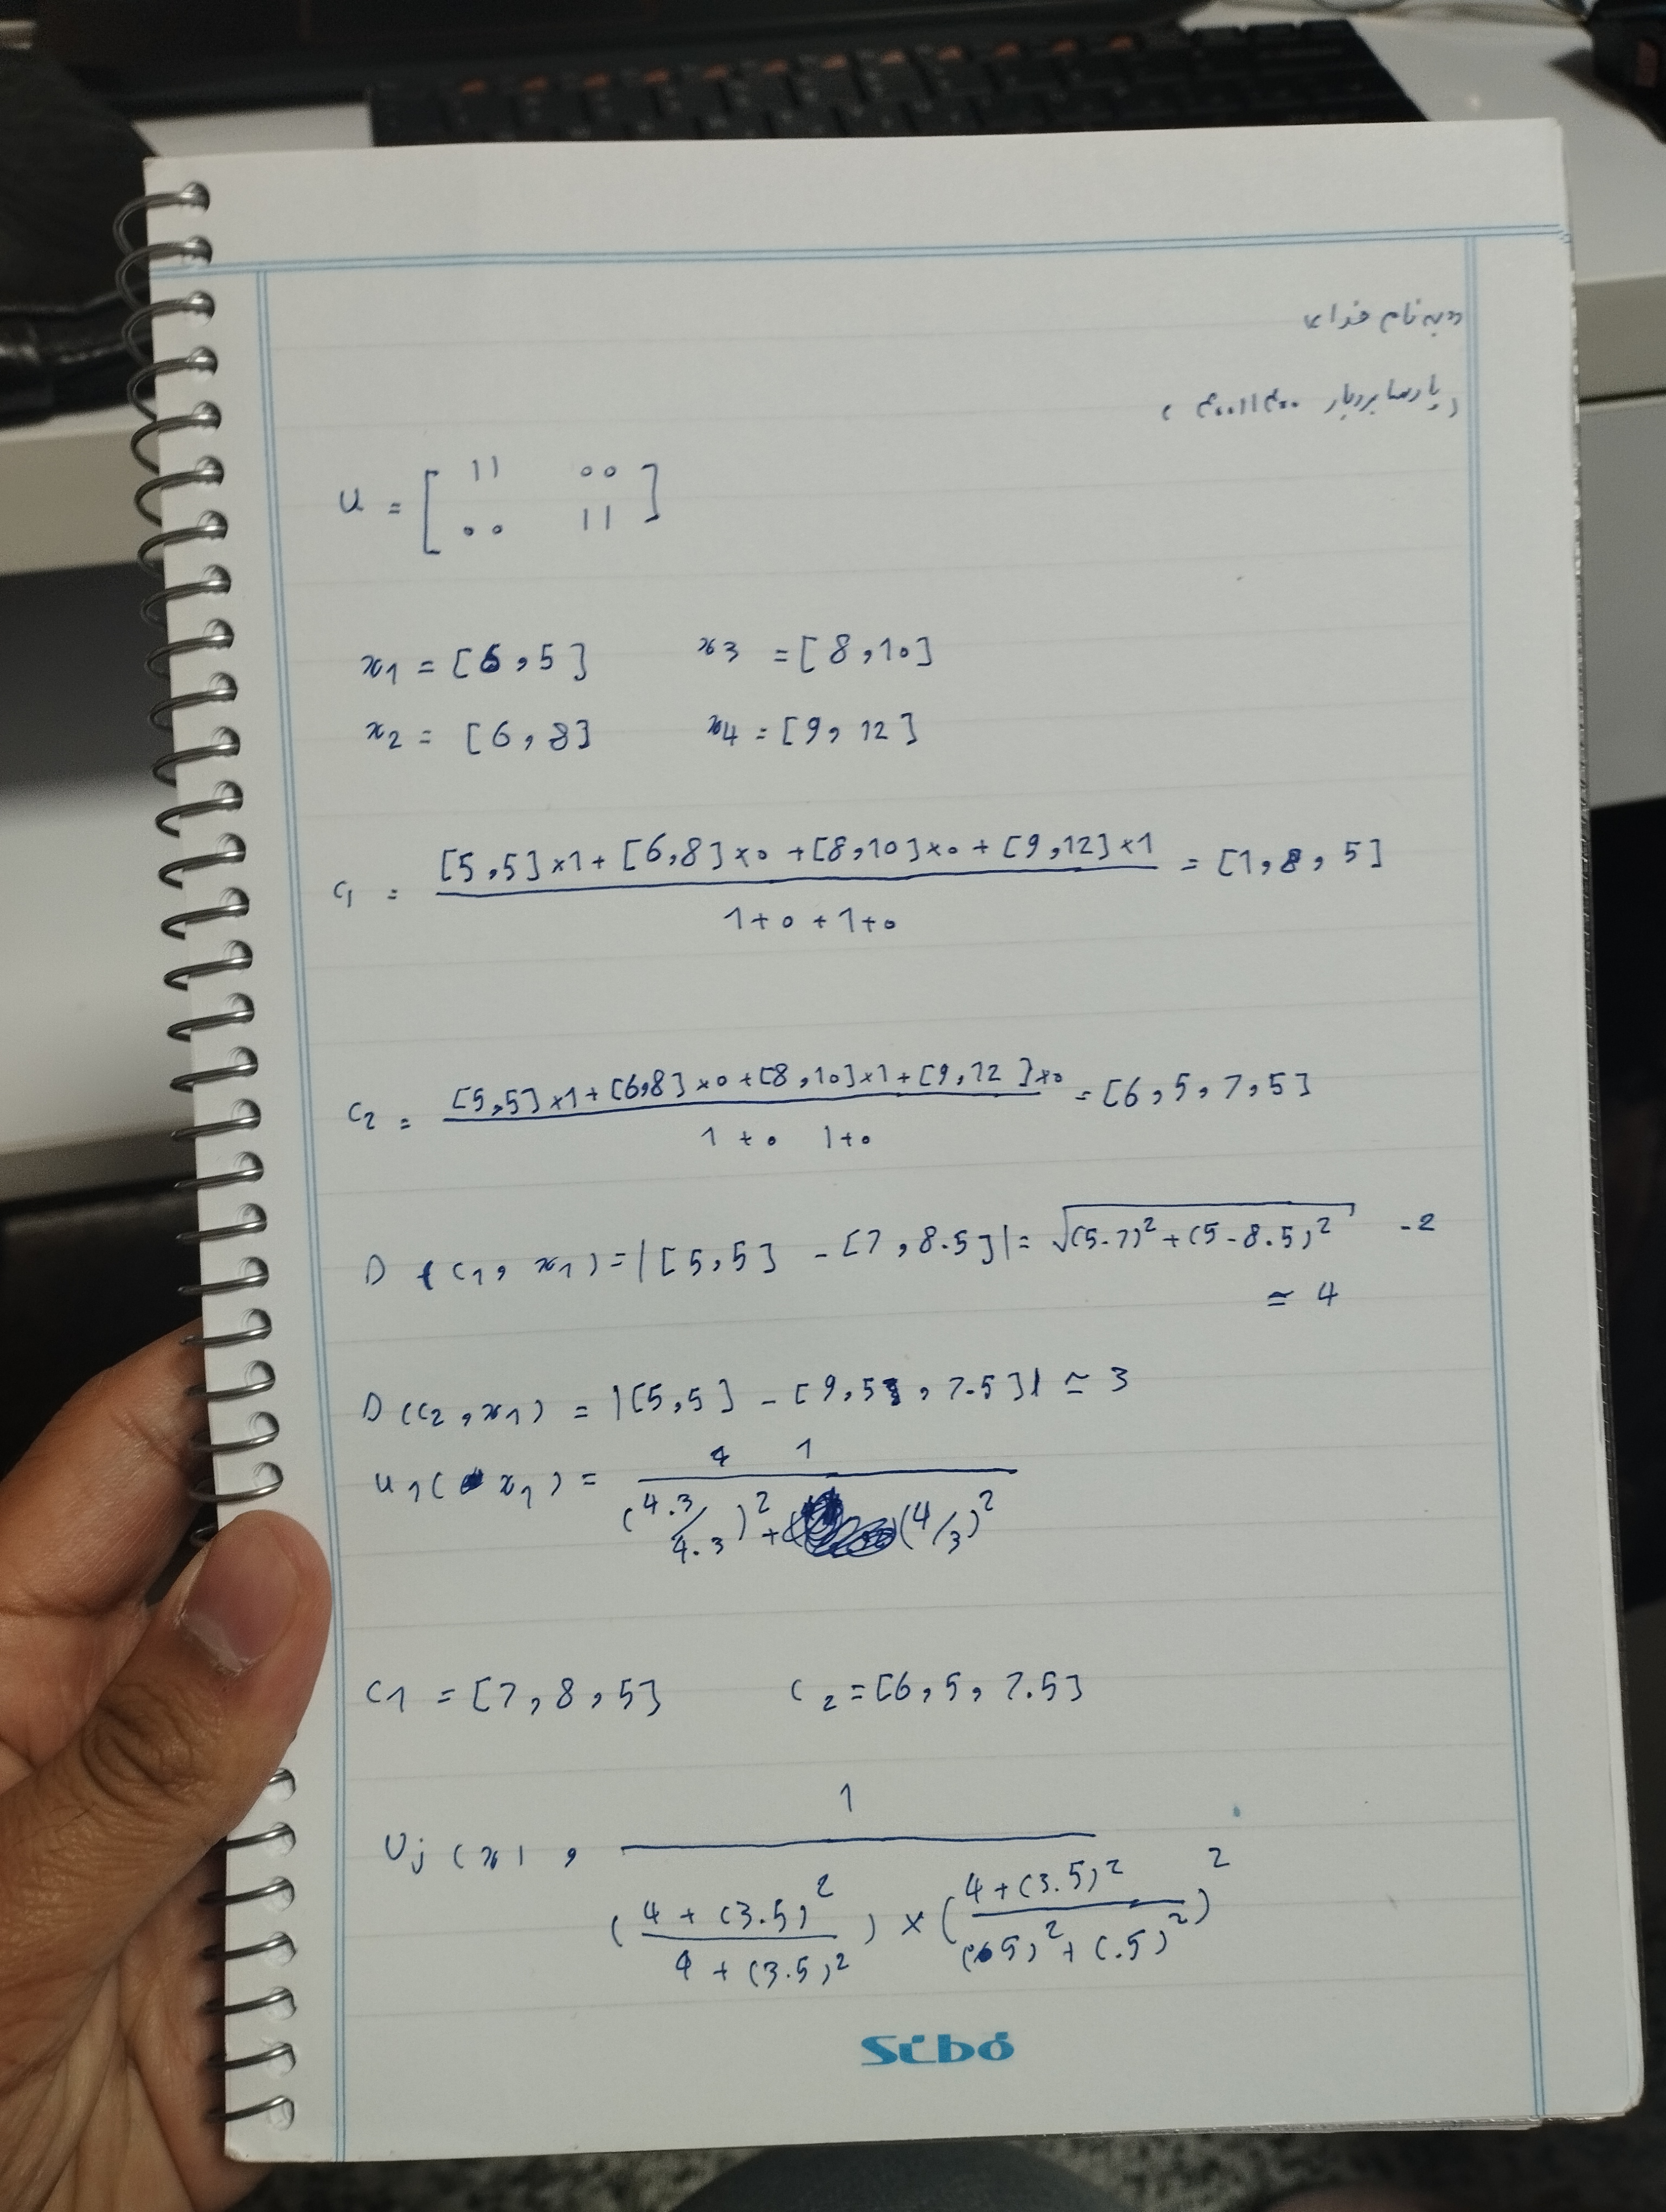 «به نام خدا»
(پارسا بردبار ۴۰۰۱۱۴۰۰۴)
U = [ 11 00
00 11 ]
x1 = [6,5] x3 = [8,10]
x2 = [6,8] x4 = [9,12]
c1 = [5,5]×1+[6,8]×0+[8,10]×0+[9,12]×1 / 1+0+1+0 = [1,8,5]
c2 = [5,5]×1+[6,8]×0+[8,10]×1+[9,12]×0 / 1+0 1+0 = [6,5,7,5]
D (c1, x1) = |[5,5] - [7,8.5]| = √(5-7)² + (5-8.5)² -2
≃ 4
D(c2,x1) = |[5,5] - [9,5, 7.5]| ≃ 3
u1( x1) = 1 / (4.3/4.3)² + (4/3)²
c1 = [7,8,5] c2 = [6,5,7.5]
Uj (x1, 1 / (4+(3.5)² / 4+(3.5)²) × (4+(3.5)² / (.5)²+(.5)²)²
Scbó